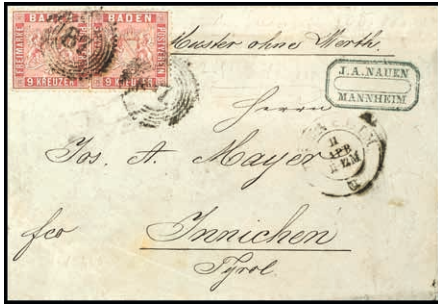 BADEN BADEN
FREIMARKE POSTVEREIN
9 KREUZER. 9 KREUZER.
Muster ohne Werth.
J.A. NAUEN
MANNHEIM
Herrn
Jos. A. Mayer
11
APR
fco Innichen
Tyrol.